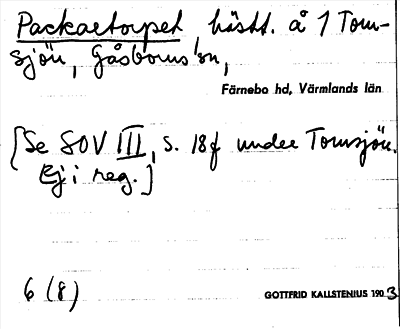 Packaretorpet, hästt. å 1 Tom-
sjön, Gåsborns sn,
Färnebo hd, Värmlands län
[Se SOV III, s. 18f under Tomsjön.
Ej i reg.]
6 (8)
GOTTFRID KALLSTENIUS 1903